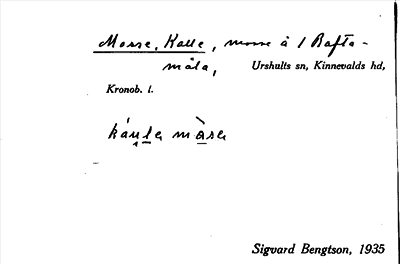 Mosse, Kalle, mosse à 1 Bafta-
måla,
Urshults sn, Kinnevalds hd,
Kronob. l.
Sigvard Bengtson, 1935